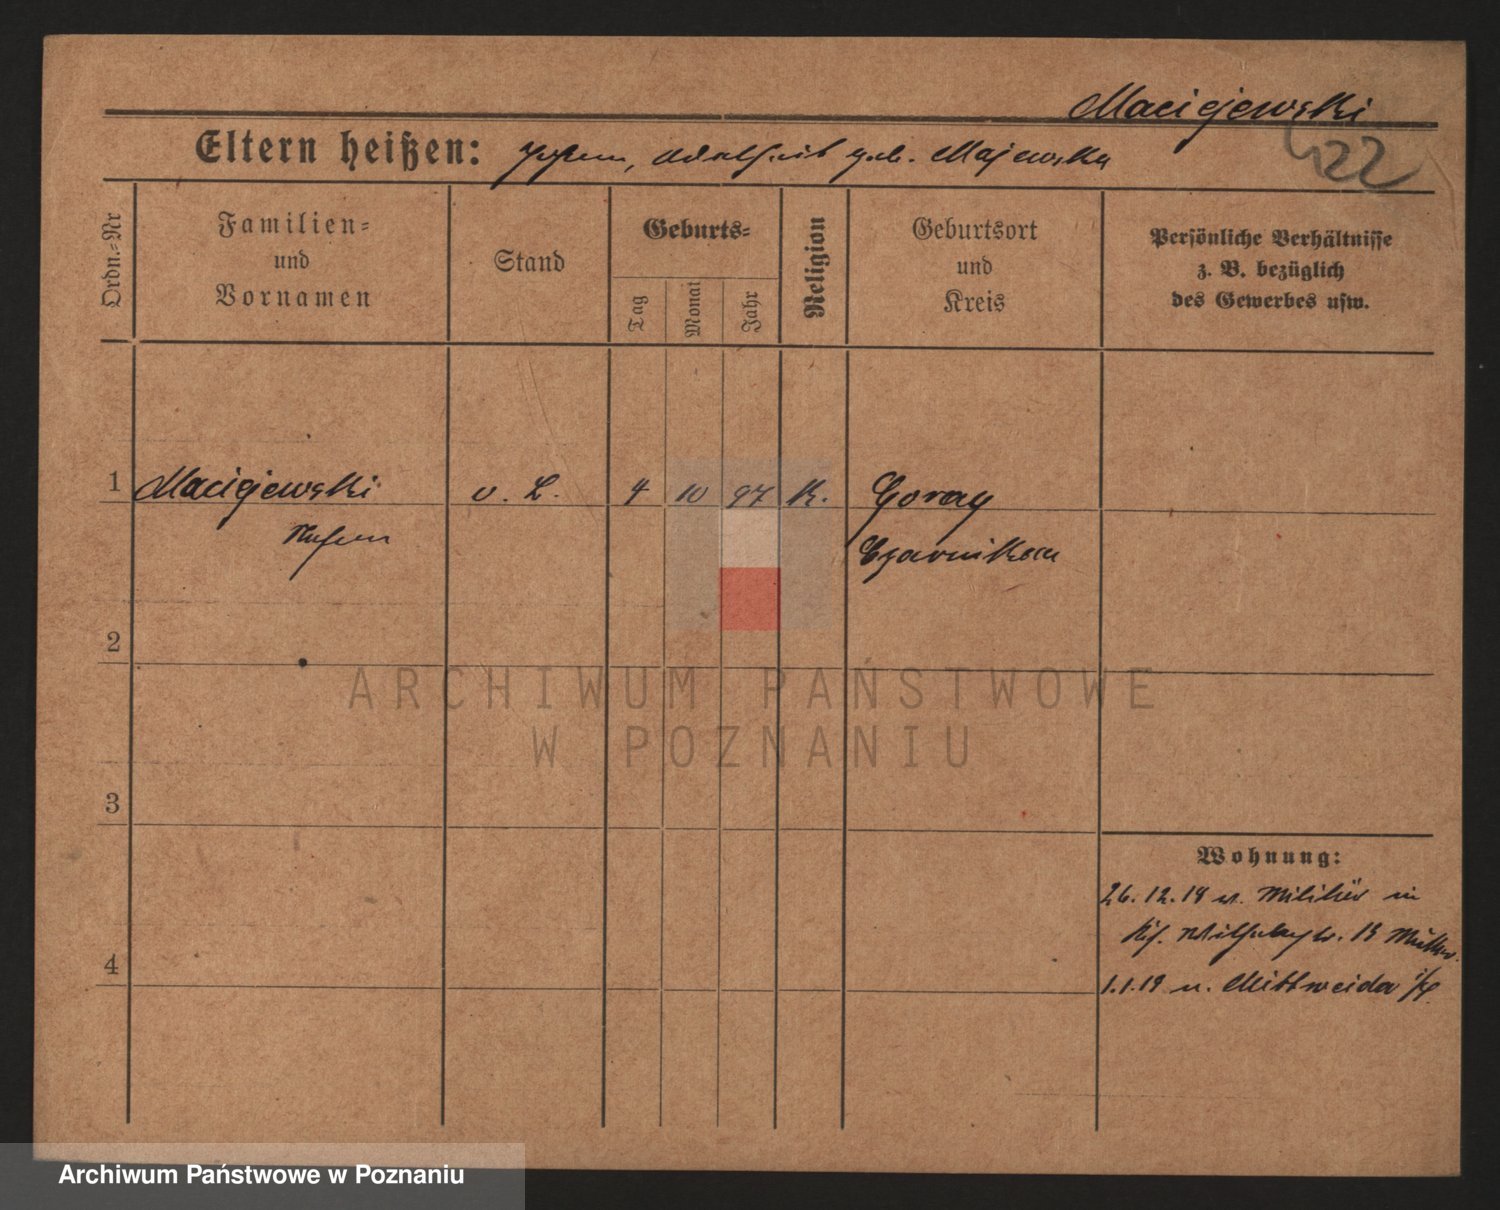 Maciejewski
422
Eltern heißen: geb. Majewska
Ordn.=Nr
Familien=
und
Vornamen
Stand
Geburts=
Tag
Monat
Jahr
Religion
Geburtsort
und
Kreis
Persönliche Verhältnisse
z. B. bezüglich
des Gewerbes usw.
1 Maciejewski v. L. 4 10 97 K. Goray
Czarnikau
2
ARCHIWUM PAŃSTWOWE
W POZNANIU
3
Wohnung:
26. 12. 18 v. Militär in
4
1.1.19 n. Mittweida
Archiwum Państwowe w Poznaniu